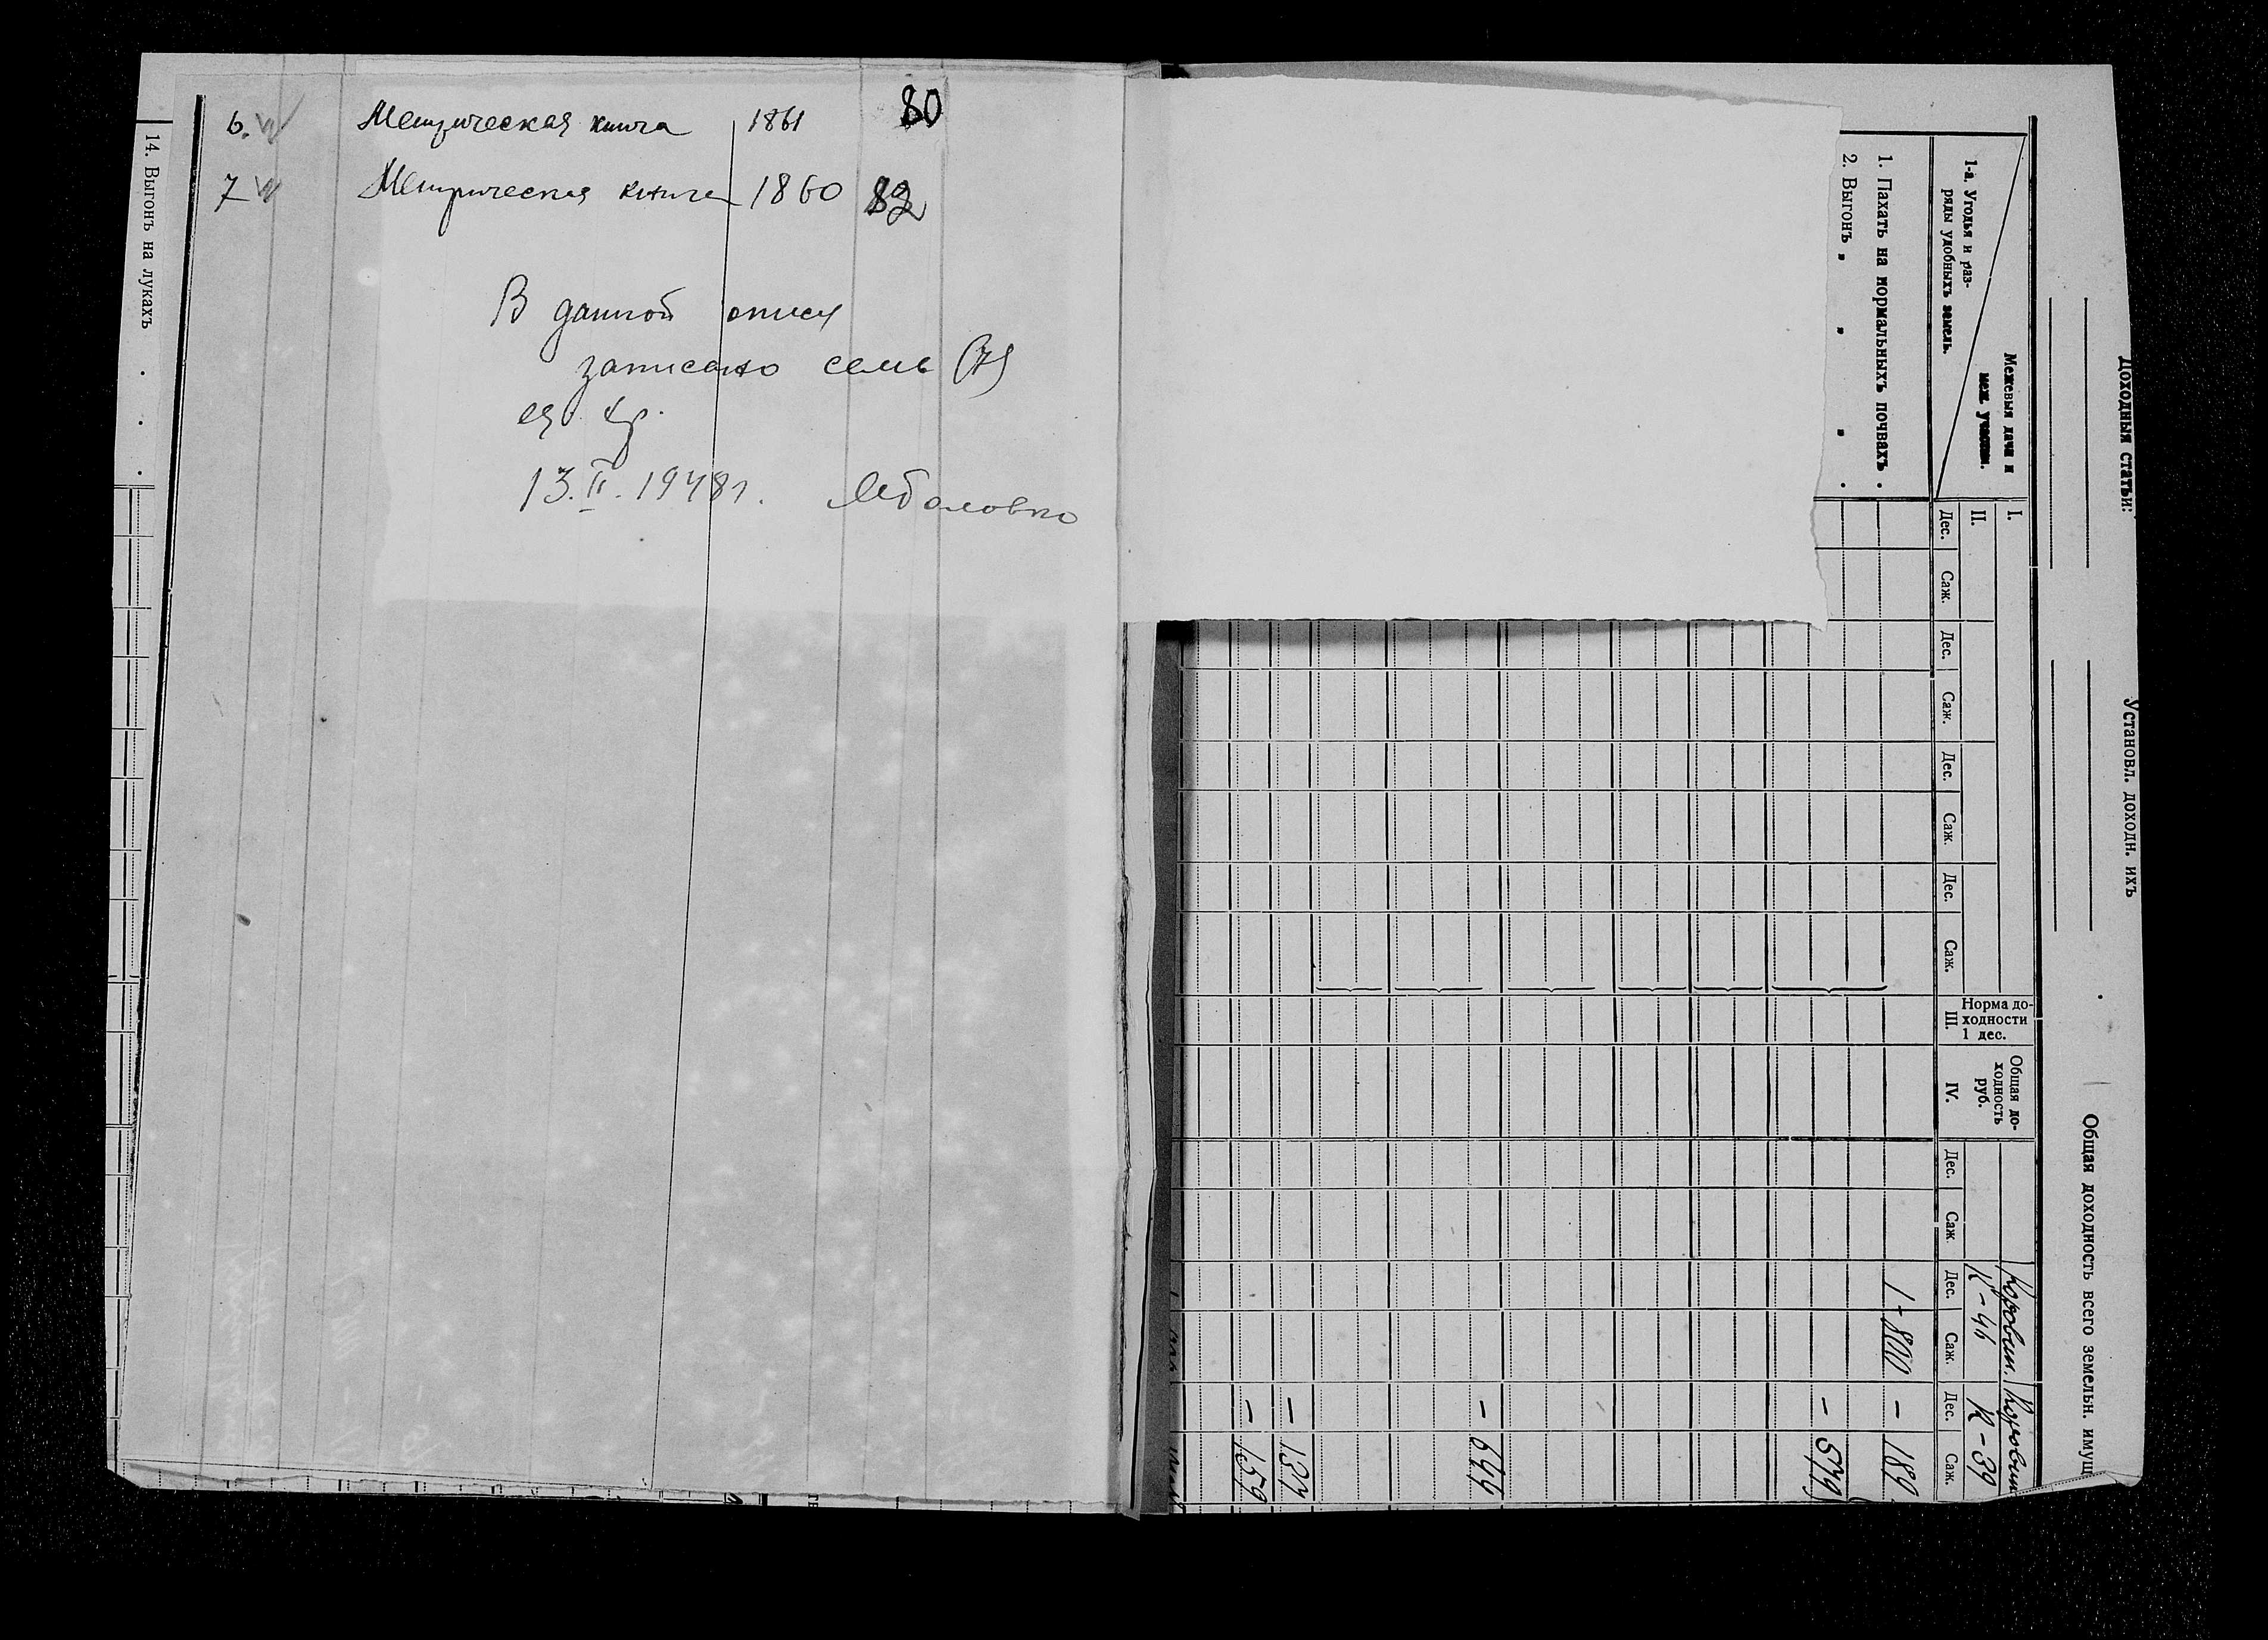 6. Метрическая книга 1861 80
7 Метрическая книга 1860 82
В данной описи
записано семь (7)
ед. хр.
13.II.1948г.
14. Выгонъ на лукахъ . . .
Доходныя статьи: Установл. доходн. ихъ
Общая доходность всего земельн. имущ
Межевыя дачи и
меж. участки.
1-а. Угодья и раз-
ряды удобныхъ земель.
1. Пахать на нормальныхъ почвахъ .
2. Выгонъ „ „ „ .
I.
II.
Дес. Саж. Дес. Саж. Дес. Саж. Дес. Саж.
Норма до-
ходности
1 дес.
III.
Общая до-
ходность
руб.
IV.
Дес. Саж. Дес. Саж. Дес. Саж.
К-46 К-39
1-800 - 189
- 579
- 644
- 134
- 159